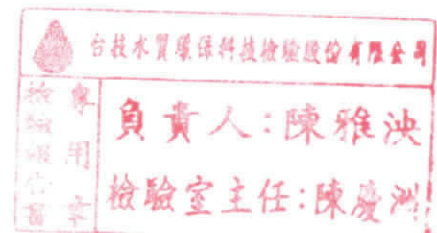 台技水質環保科技檢驗股份有限公司
檢測報告書
專用章
負責人:陳雅泱
檢驗室主任:陳慶洲